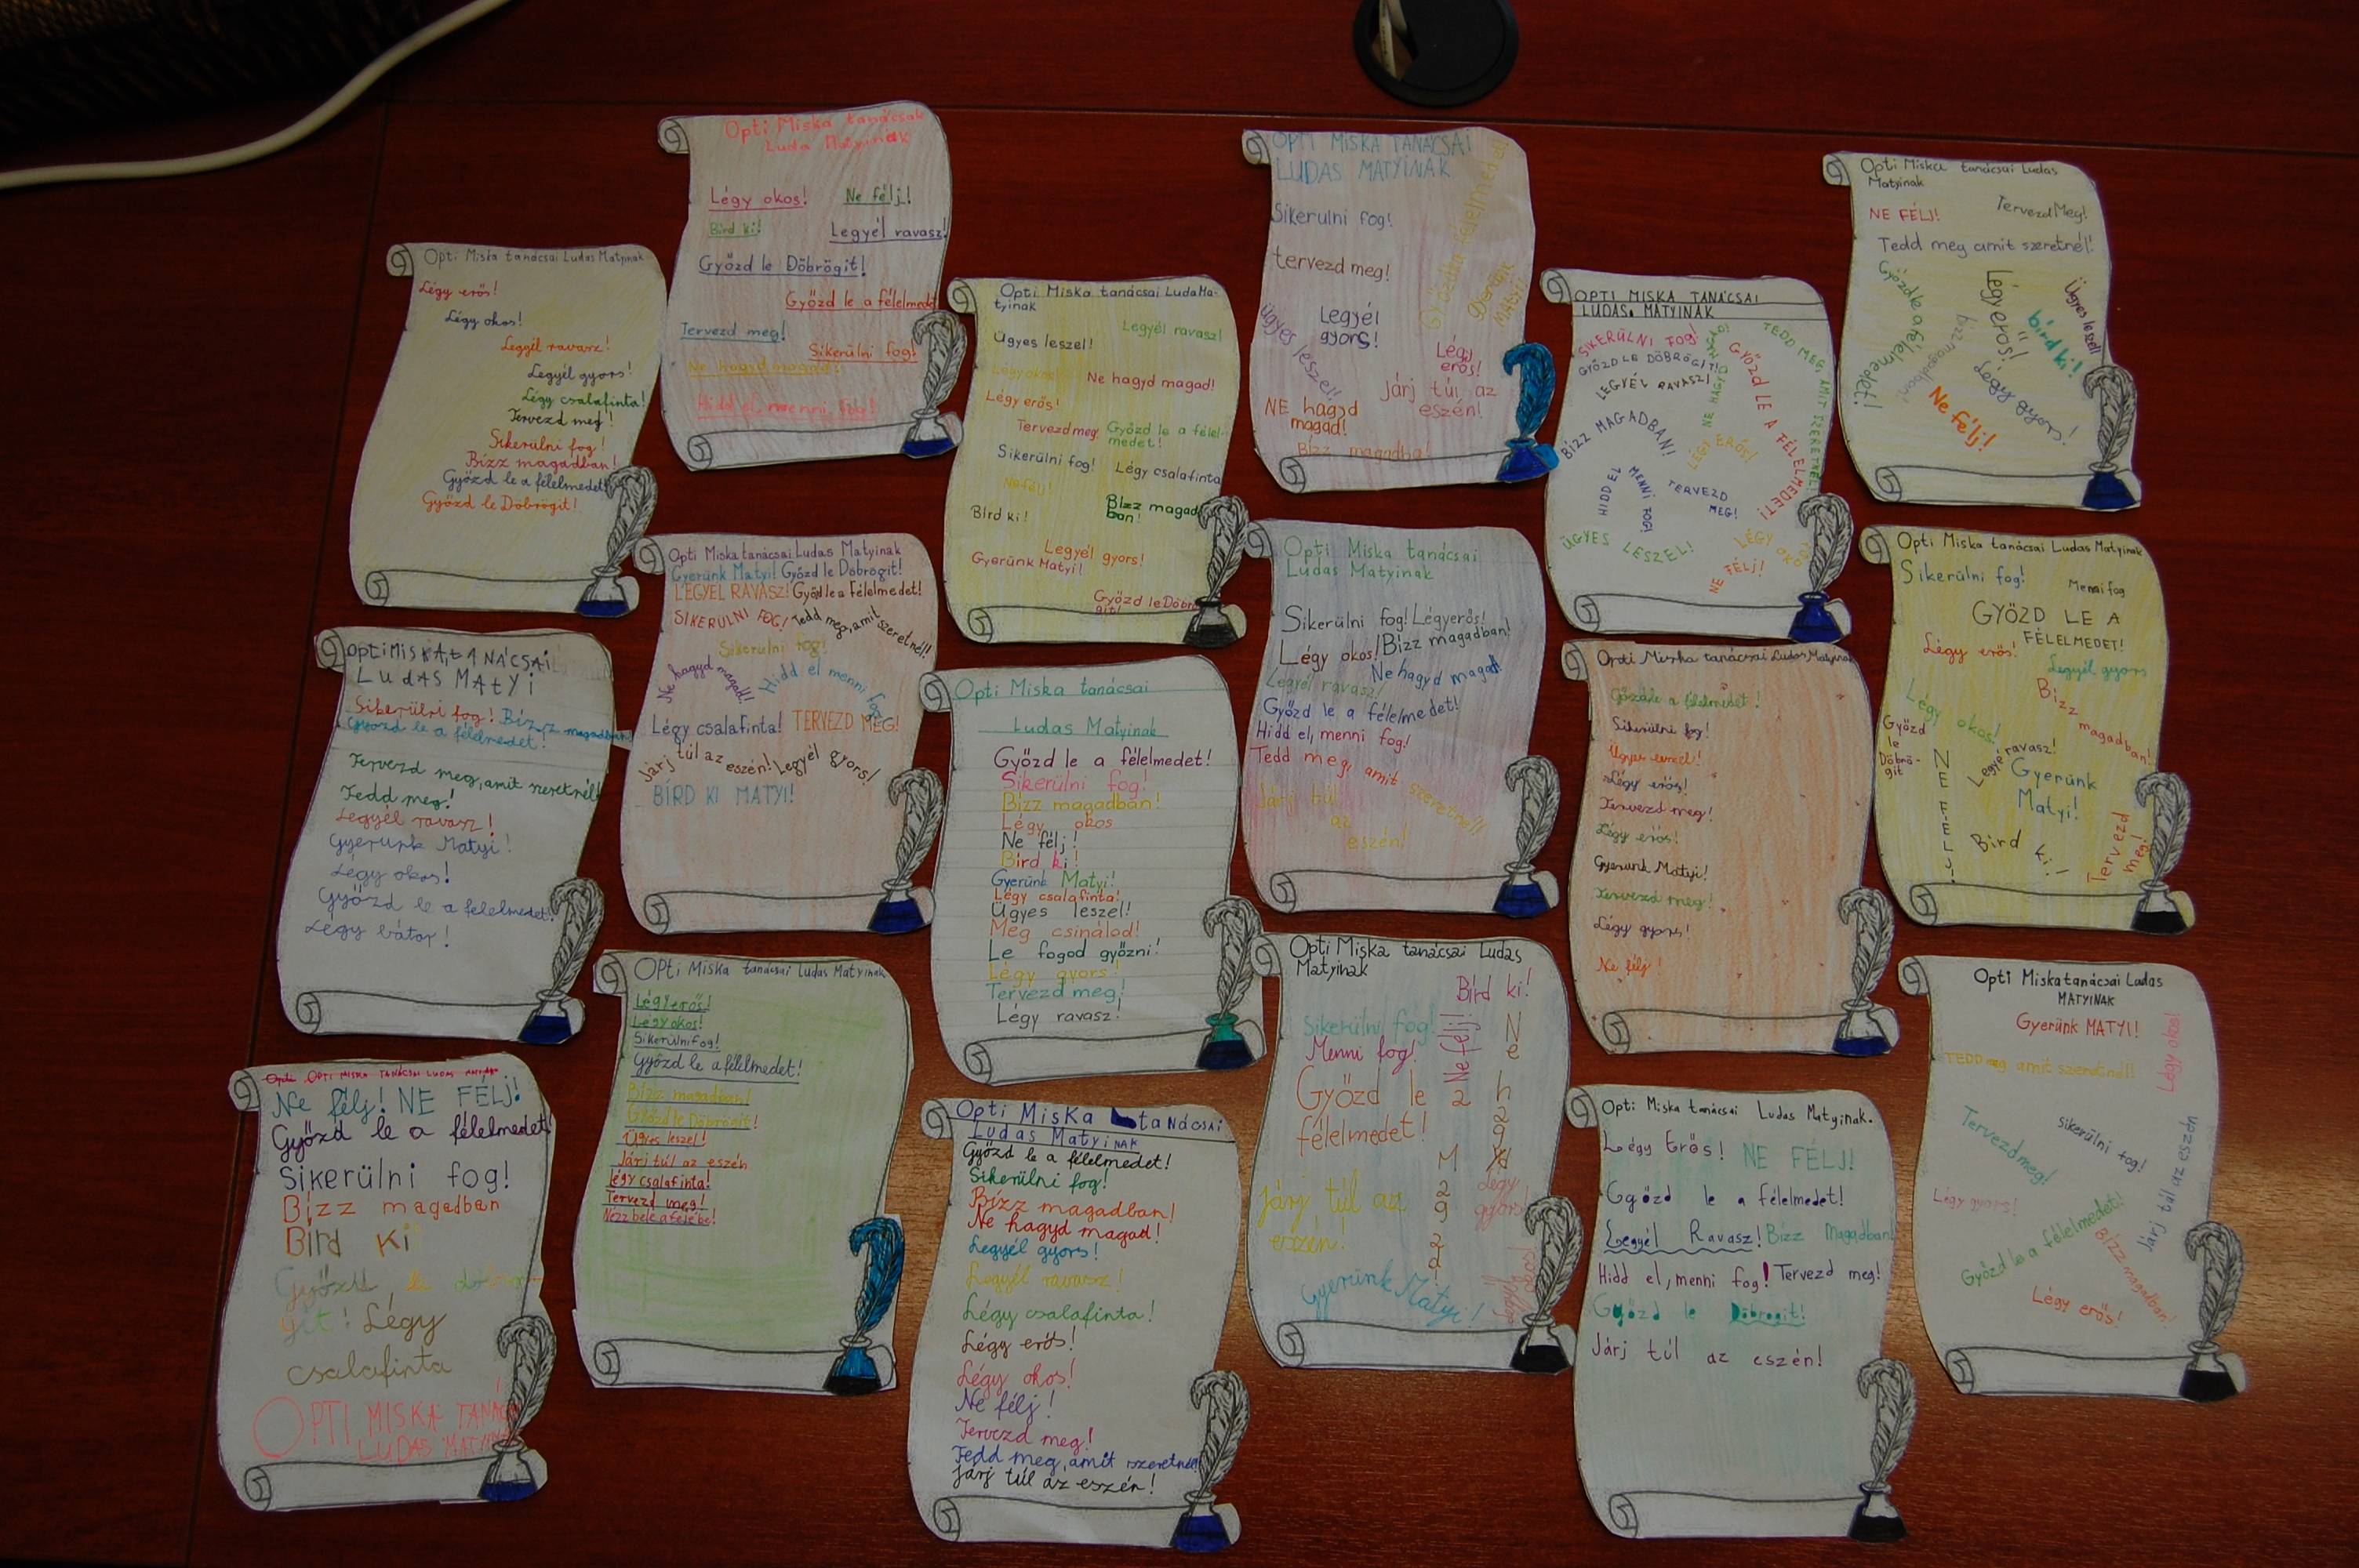 Opti Miska tanácsai Ludas Matyinak
Légy erős!
Légy okos!
Legyél ravasz!
Legyél gyors!
Légy csalafinta!
Tervezd meg!
Sikerülni fog!
Bízz magadban!
Győzd le a félelmedet
Győzd le Döbrögit!
Opti Miska tanácsak
Luda Matyinak
Légy okos! Ne félj!
Bírd ki! Legyél ravasz!
Győzd le Döbrögit!
Győzd le a félelmedet
Tervezd meg!
Sikerülni fog!
Ne hagyd magad!
Hidd el, menni fog!
Opti Miska tanácsai Luda Ma-
tyinak
Legyél ravasz!
Ügyes leszel!
Légy okos!
Ne hagyd magad!
Légy erős!
Tervezd meg. Győzd le a félel-
medet!
Sikerülni fog! Légy csalafinta
Ne félj!
Bízz magad
ban!
Bírd ki!
Legyél gyors!
Gyerünk Matyi!
Győzd le Döbrö
git!
OPTI MISKA TANÁCSAI
LUDAS MATYINAK
Sikerulni fog!
tervezd meg!
Legyél
gyors!
ügyes leszel!
Légy
erős!
Járj túl az
eszén!
NE hagyd
magad!
OPTI MISKA TANÁCSAI
LUDAS MATYINAK
SIKERÜLNI FOG!
GYŐZD LE DÖBRÖGIT!
LEGYÉL RAVASZ!
NE HAGYD MAGAD!
GYŐZD LE A FÉLELMEDET!
TEDD MEG, AMIT SZERETNÉL!
BÍZZ MAGADBAN!
LÉGY ERŐS!
HIDD EL
MENNI FOG!
TERVEZD
MEG!
ÜGYES LESZEL!
NE FÉLJ!
Opti Miska tanácsai Ludas
Matyinak
NE FÉLJ! Tervezd Meg!
Tedd meg amit szeretnél!
Győzd le a félelmedet!
Légy erős!
bízz magadban!
bírd ki!
Ügyes leszel!
Légy gyors!
Ne félj!
optiMISKA tANÁCSAi
LudAS MAtyi
Sikerülri fog! Bízz magadban!
Győzd le a félelmedet!
Tervezd meg, amit szeretnél!
Tedd meg!
Legyél ravasz!
Gyerünk Matyi!
Légy okos!
Győzd le a félelmedet!
Légy bátor!
Opti Miska tanácsai Ludas Matyinak
Gyerünk Matyi! Győzd le Döbrögit!
LEGYEL RAVASZ! Győzd le a félelmedet!
SIKERÜLNI FOG! Tedd meg, amit szeretnél!
Sikerülni fog!
Ne hagyd magad!
Hidd el menni fog
Légy csalafinta! TERVEZD MEG!
Járj túl az eszén! Legyél gyors!
BÍRD KI MATYI!
Opti Miska tanácsai
Ludas Matyinak
Győzd le a félelmedet!
Sikerülni fog!
Bízz magadban!
Légy okos
Ne félj!
Bírd ki!
Gyerünk Matyi!
Légy csalafinta!
Ügyes leszel!
Meg csinálod!
Le fogod győzni!
Légy gyors!
Tervezd meg!
Légy ravasz!
Opti Miska tanácsai
Ludas Matyinak
Sikerülni fog! Légyerős!
Légy okos! Bízz magadban!
Ne hagyd magad!
Legyél ravasz!
Győzd le a félelmedet!
Hidd el, menni fog!
Tedd meg, amit szeretnél!
Járj túl
az
eszén!
Opti Miska tanácsai Ludas Matyinak
Sikerülni fog!
Légy erős!
Tervezd meg!
Légy erős!
Gyerünk Matyi!
Tervezd meg!
Légy gyors!
Ne félj!
Opti Miska tanácsai Ludas Matyinak
Sikerülni fog! Menni fog
GYŐZD LE A
FÉLELMEDET!
Légy erős!
Legyél gyors
Légy okos!
Bízz
magadban!
Győzd
le
Döbrö-
git
NE FÉLJ!
Legyél ravasz!
Gyerünk
Matyi!
Bírd ki!
Tervezd
meg!
OPTI MISKA TANÁCSAI LUDAS
Ne félj! NE FÉLJ!
Győzd le a félelmedet!
Sikerülni fog!
Bízz magadban
Bírd ki
git! Légy
csalafinta
OPTI MISKA
LUDAS
OPti Miska tanácsai Ludas Matyinak
Légy erős!
Légy okos!
Sikerülni fog!
Győzd le a félelmedet!
Bízz magadban!
Győzd le Döbrögit!
Ügyes leszel!
Járj túl az eszén
légy csalafinta!
Tervezd meg!
Opti Miska taNácsai
Ludas Matyinak
Győzd le a félelmedet!
Sikerülni fog!
Bízz magadban!
Ne hagyd magad!
Legyél gyors!
Legyél ravasz!
Légy csalafinta!
Légy erős!
Légy okos!
Ne félj!
Tervezd meg!
Tedd meg, amit szeretnél
Járj túl az eszén!
Opti Miska tanácsai Ludas
Matyinak
Bírd ki!
Sikerülni fog!
Menni fog!
Ne félj!
Győzd le a
félelmedet!
Járj túl az
eszén!
Légy
gyors!
Gyerünk Matyi!
Opti Miska tanácsai Ludas Matyinak.
Légy Erős! NE FÉLJ!
Győzd le a félelmedet!
Legyél Ravasz! Bízz Magadban!
Hidd el, menni fog! Tervezd meg!
Győzd le Döbrogit!
Járj túl az eszén!
Opti Miska tanácsai Ludas
MATYINAK
Gyerünk MATYI!
Légy okos!
TEDD meg amit szeretnél!
Tervezd meg!
Sikerülni fog!
Járj túl az eszén
Légy gyors!
Győzd le a félelmedet!
Bízz magadban!
Légy erős!